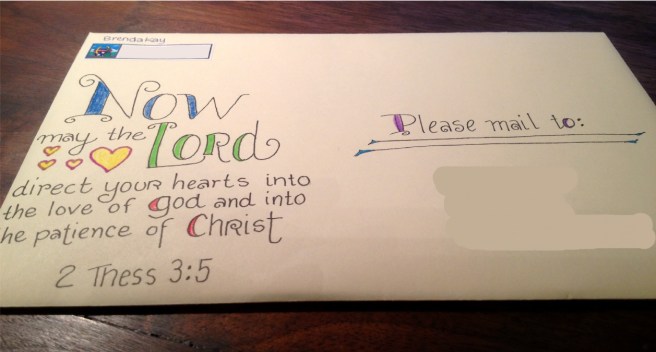 Brenda Kay
Now
may the Lord
direct your hearts into
the love of god and into
he patience of Christ
2 Thess 3:5
Please mail to: